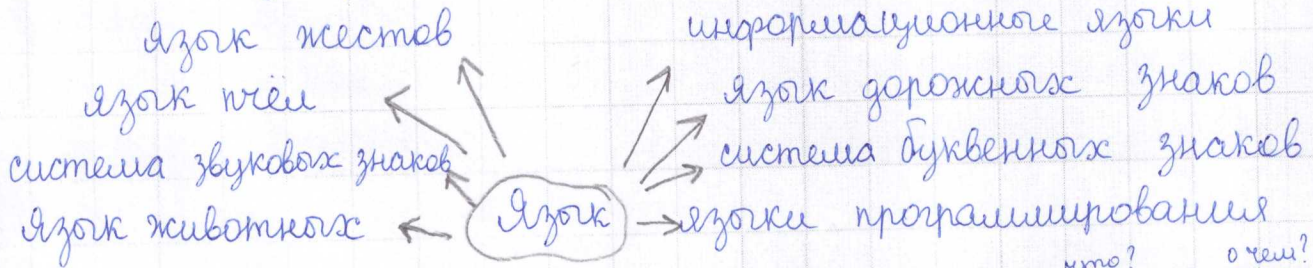 язык жестов
язык пчёл
система звуковых знаков
язык животных
Язык
информационные языки
язык дорожных знаков
система буквенных знаков
языки программирования
что? о чем?